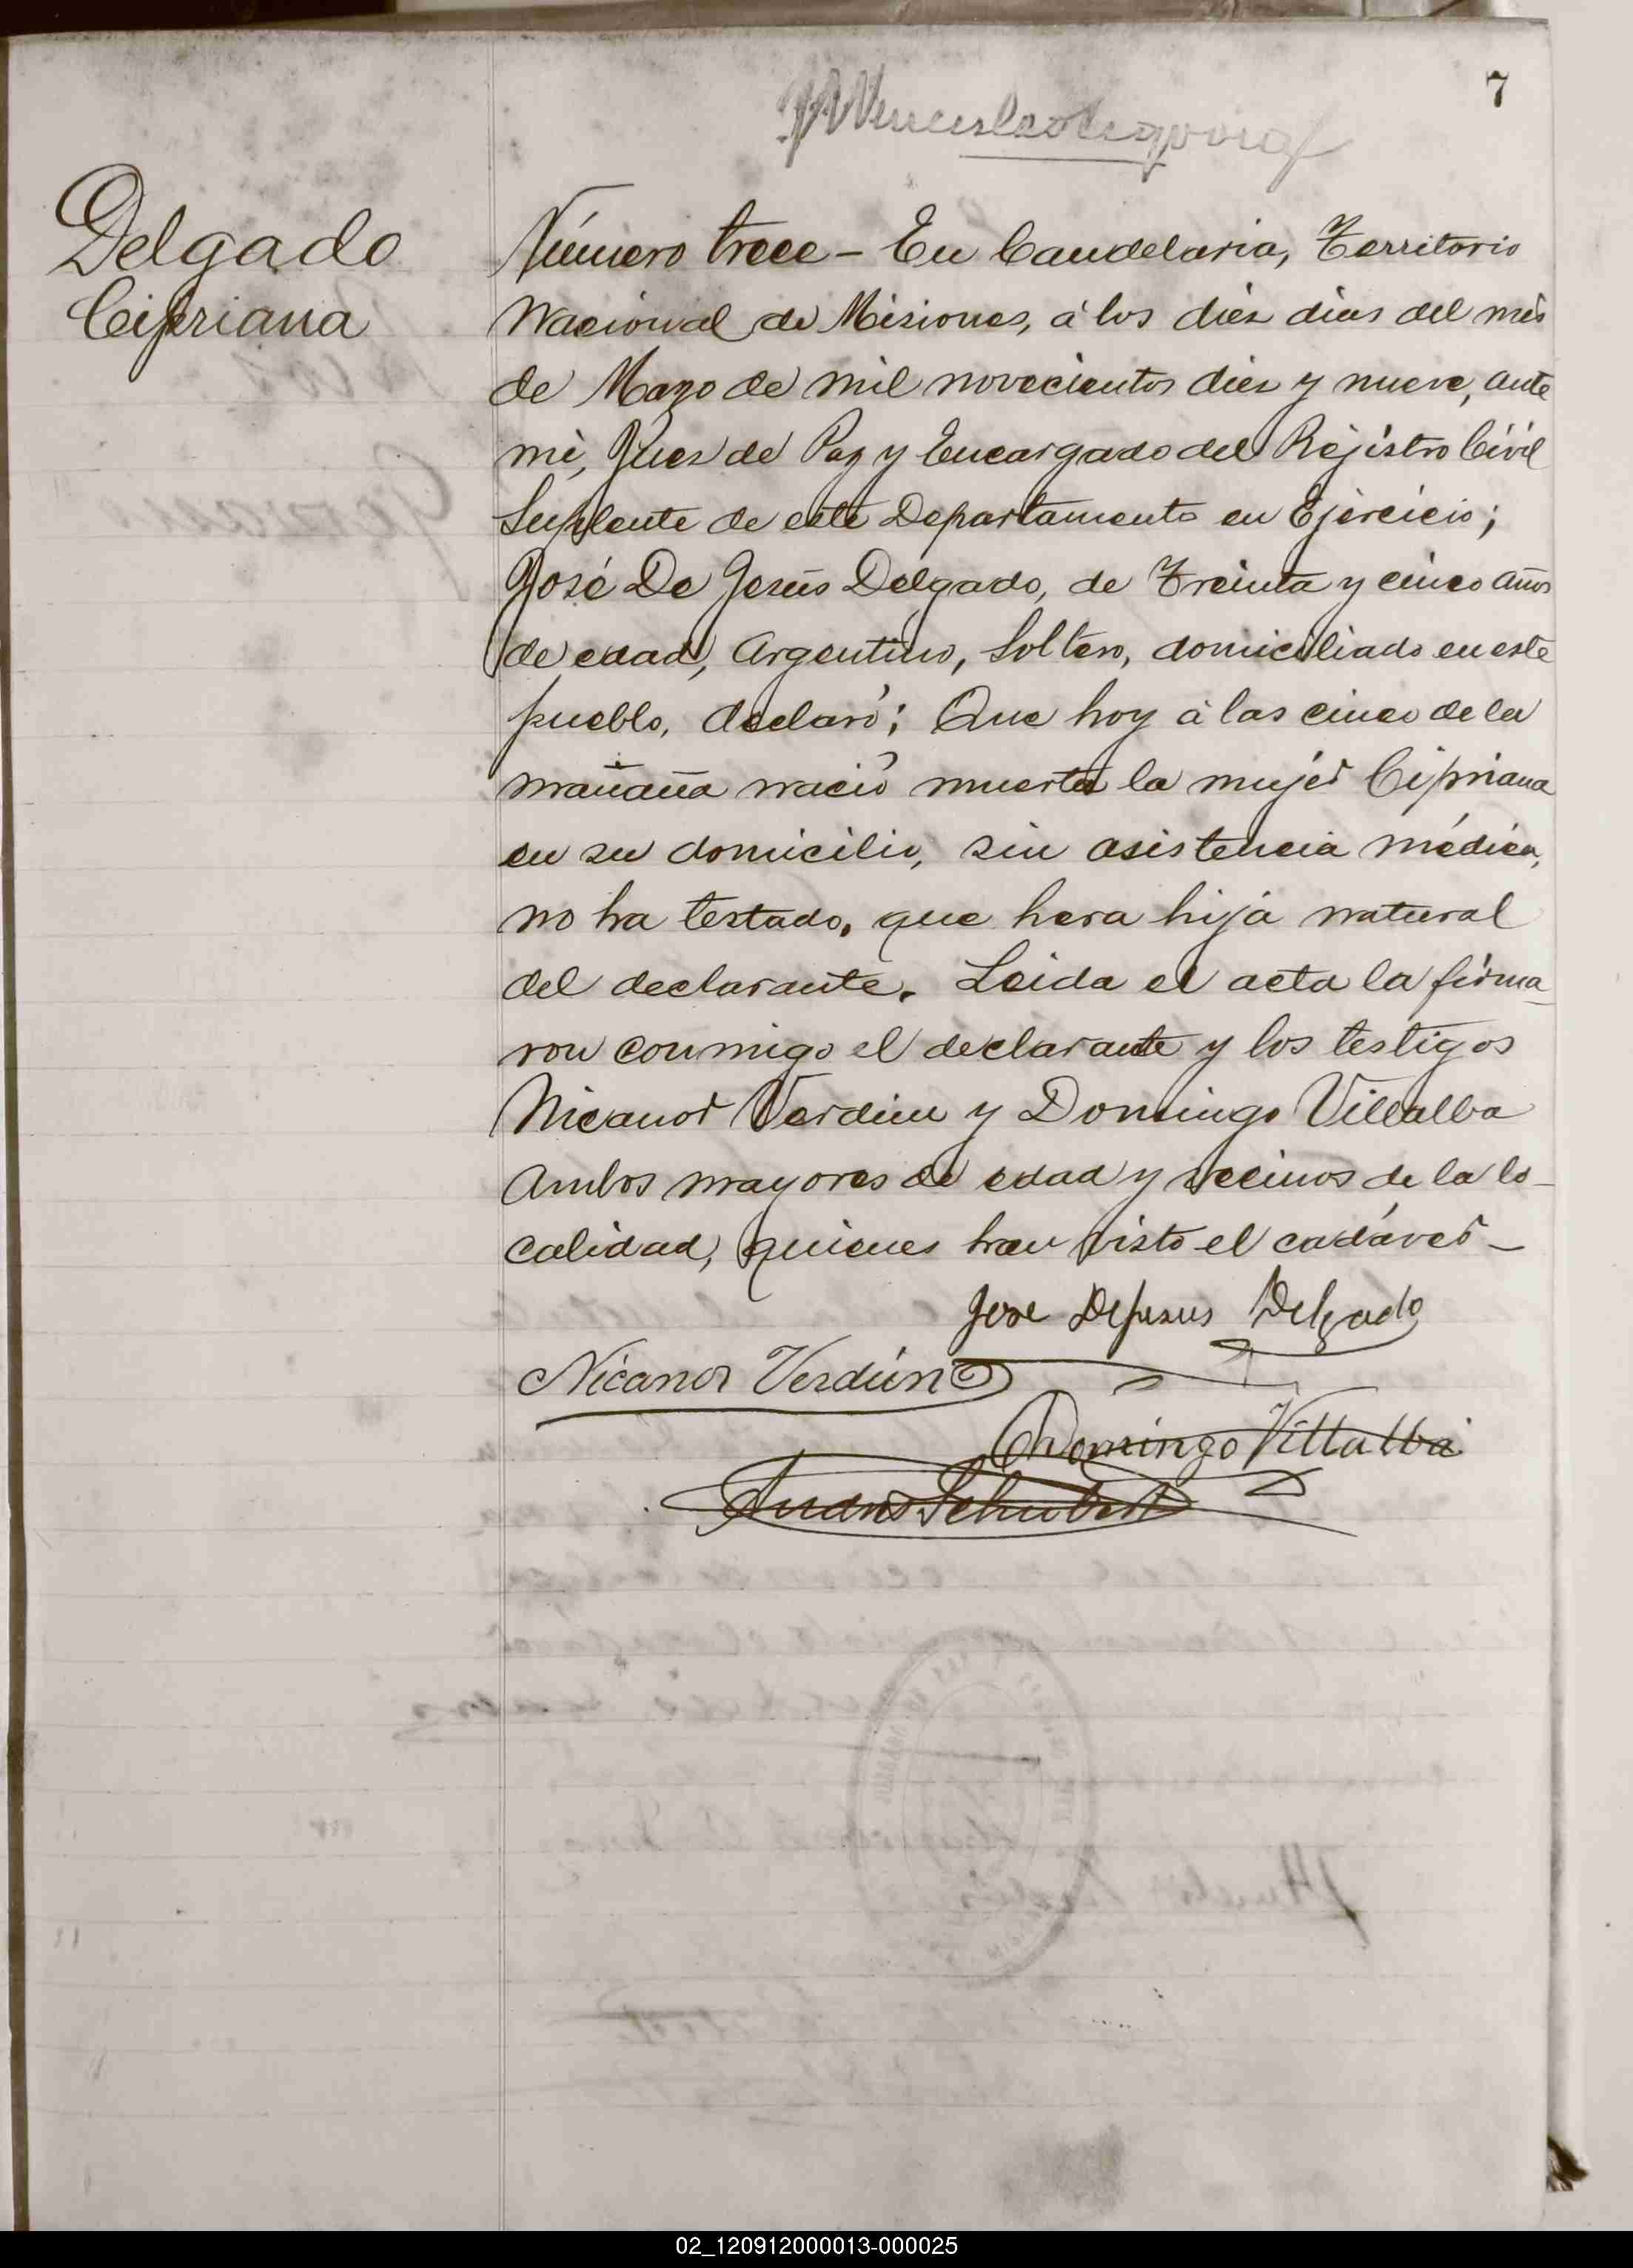 7
Delgado
Cipriana
Número trece – En Candelaria, Territorio
Nacional de Misiones, á los diez dias del mes
de Mayo de mil novecientos diez y nueve, ante
mi, Juez de Paz y Encargado del Rejistro Civil
Suplente de este Departamento en Ejercicio;
José De Jesús Delgado, de Treinta y cinco años
de edad, Argentino, Soltero, domiciliado en este
pueblo, declaró; Que hoy á las cinco de la
mañana nació muerta la mujer Cipriana
en su domicilio, sin asistencia médica,
no ha testado, que hera hija natural
del declarante. Leida el acta la firma-
ron conmigo el declarante y los testigos
Nicanor Verdun y Domingo Villalba
Ambos mayores de edad y vecinos de la lo-
calidad, quienes han visto el cadáver –
Jose Dejesus Delgado
Nicanor Verdún
Domingo Villalba
Schubert
02_120912000013-000025